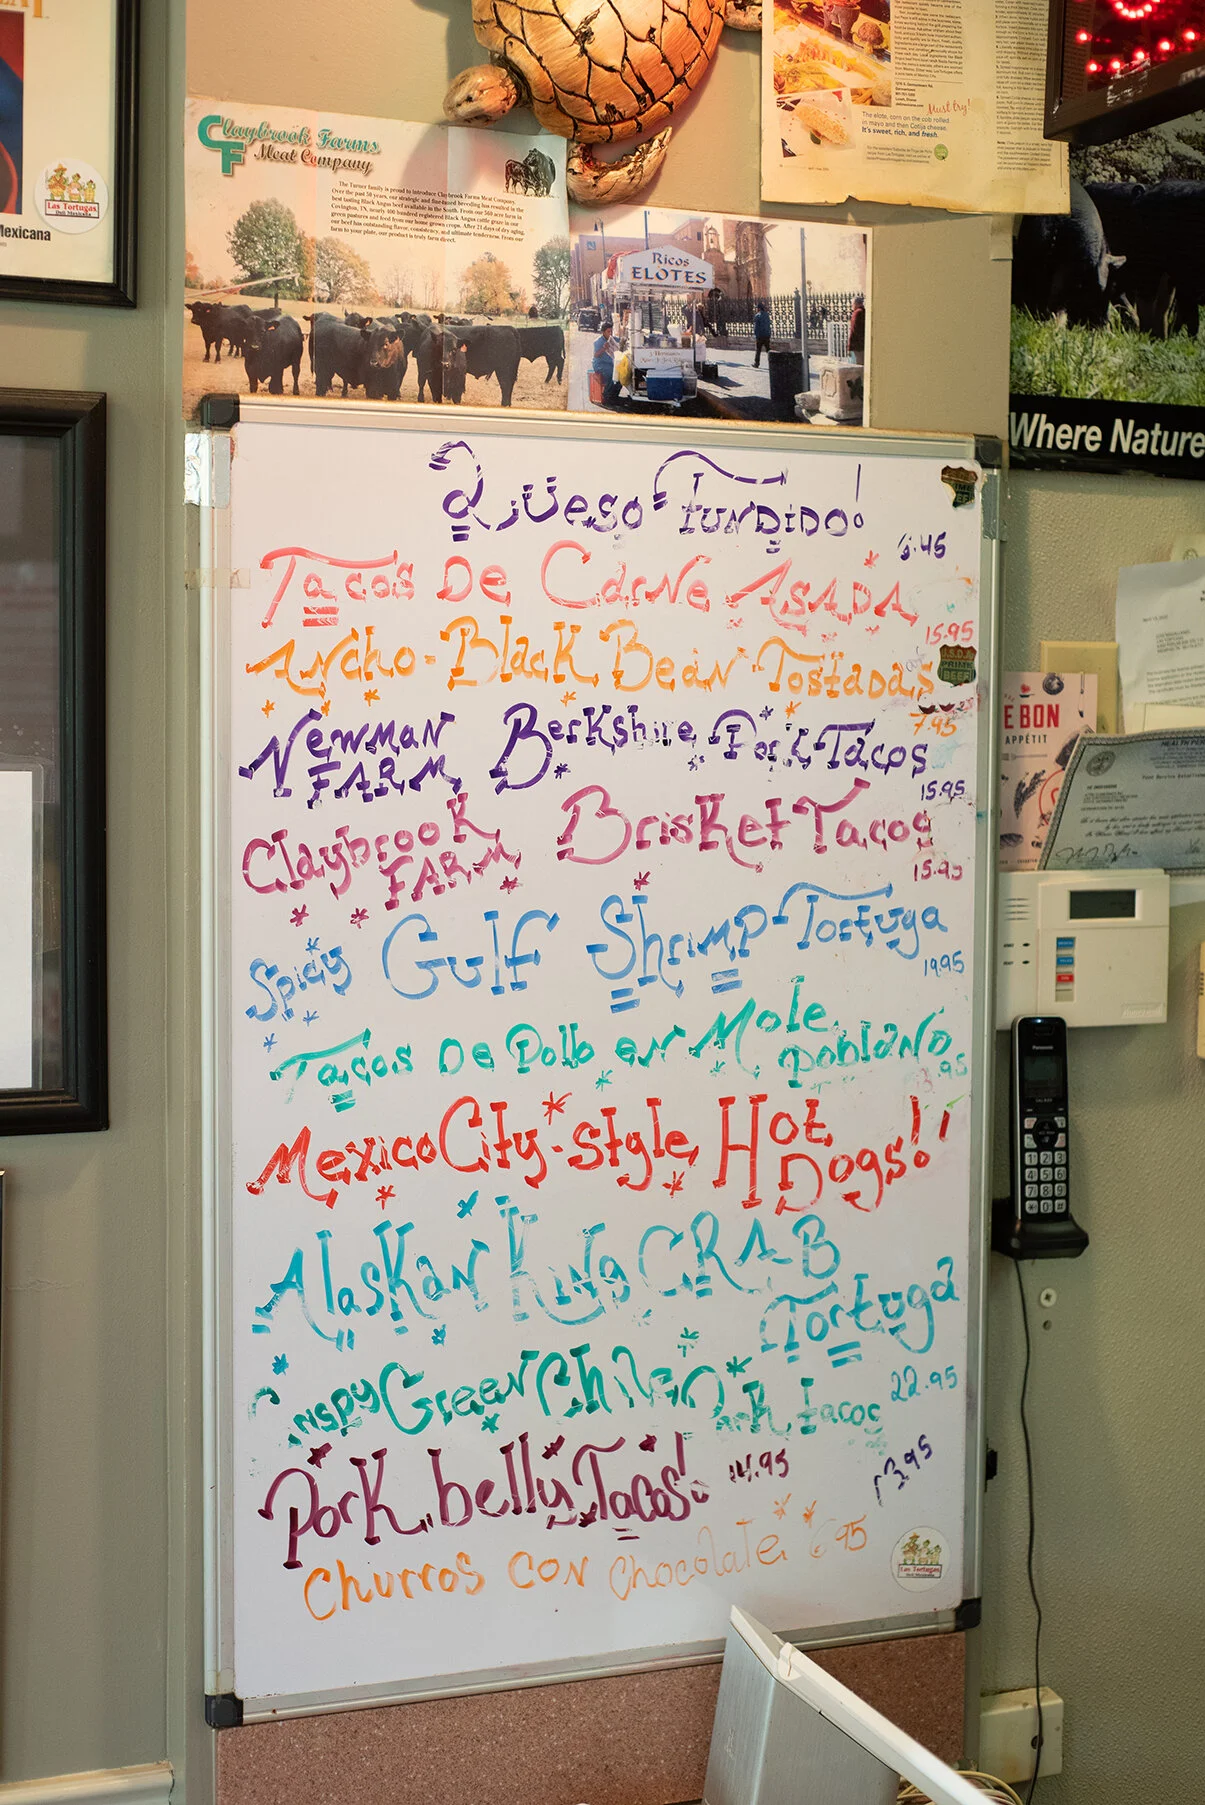 Claybrook Farms
Meat Company
The Turner family is proud to introduce Claybrook Farms Meat Company.
Over the past 50 years, our strategic and fine-tuned breeding has resulted in the
best tasting Black Angus beef available in the South. From our 560 acre farm in
Covington, TN, nearly 400 hundred registered Black Angus cattle graze in our
green pastures and feed from our home grown crops. After 21 days of dry aging,
our beef has outstanding flavor, consistency, and ultimate tenderness. From our
farm to your plate, our product is truly farm direct.
Las Tortugas
Deli Mexicana
Mexicana
Must try!
The elote, corn on the cob rolled
in mayo and then Cotija cheese.
It's sweet, rich, and fresh.
Ricos
ELOTES
Where Nature
Queso Fundido!
6.45
Tacos De Carne Asada
15.95
Ancho-Black Bean Tostadas
7.95
Newman Farm Berkshire Pork Tacos
15.95
Claybrook Farm Brisket Tacos
15.95
Spicy Gulf Shrimp Tortuga
19.95
Tacos De Pollo en Mole Poblano
.95
Mexico City-style Hot Dogs!!
Alaskan King CRAB
Tortuga
22.95
Crispy Green Chile Pork tacos
13.95
Pork belly Tacos! 14.95
Churros con Chocolate 6.95
Las Tortugas
Deli Mexicana
PRIME
BEEF
E BON
APPÉTIT
Panasonic
Honeywell
1 2 3
4 5 6
7 8 9
* 0 #